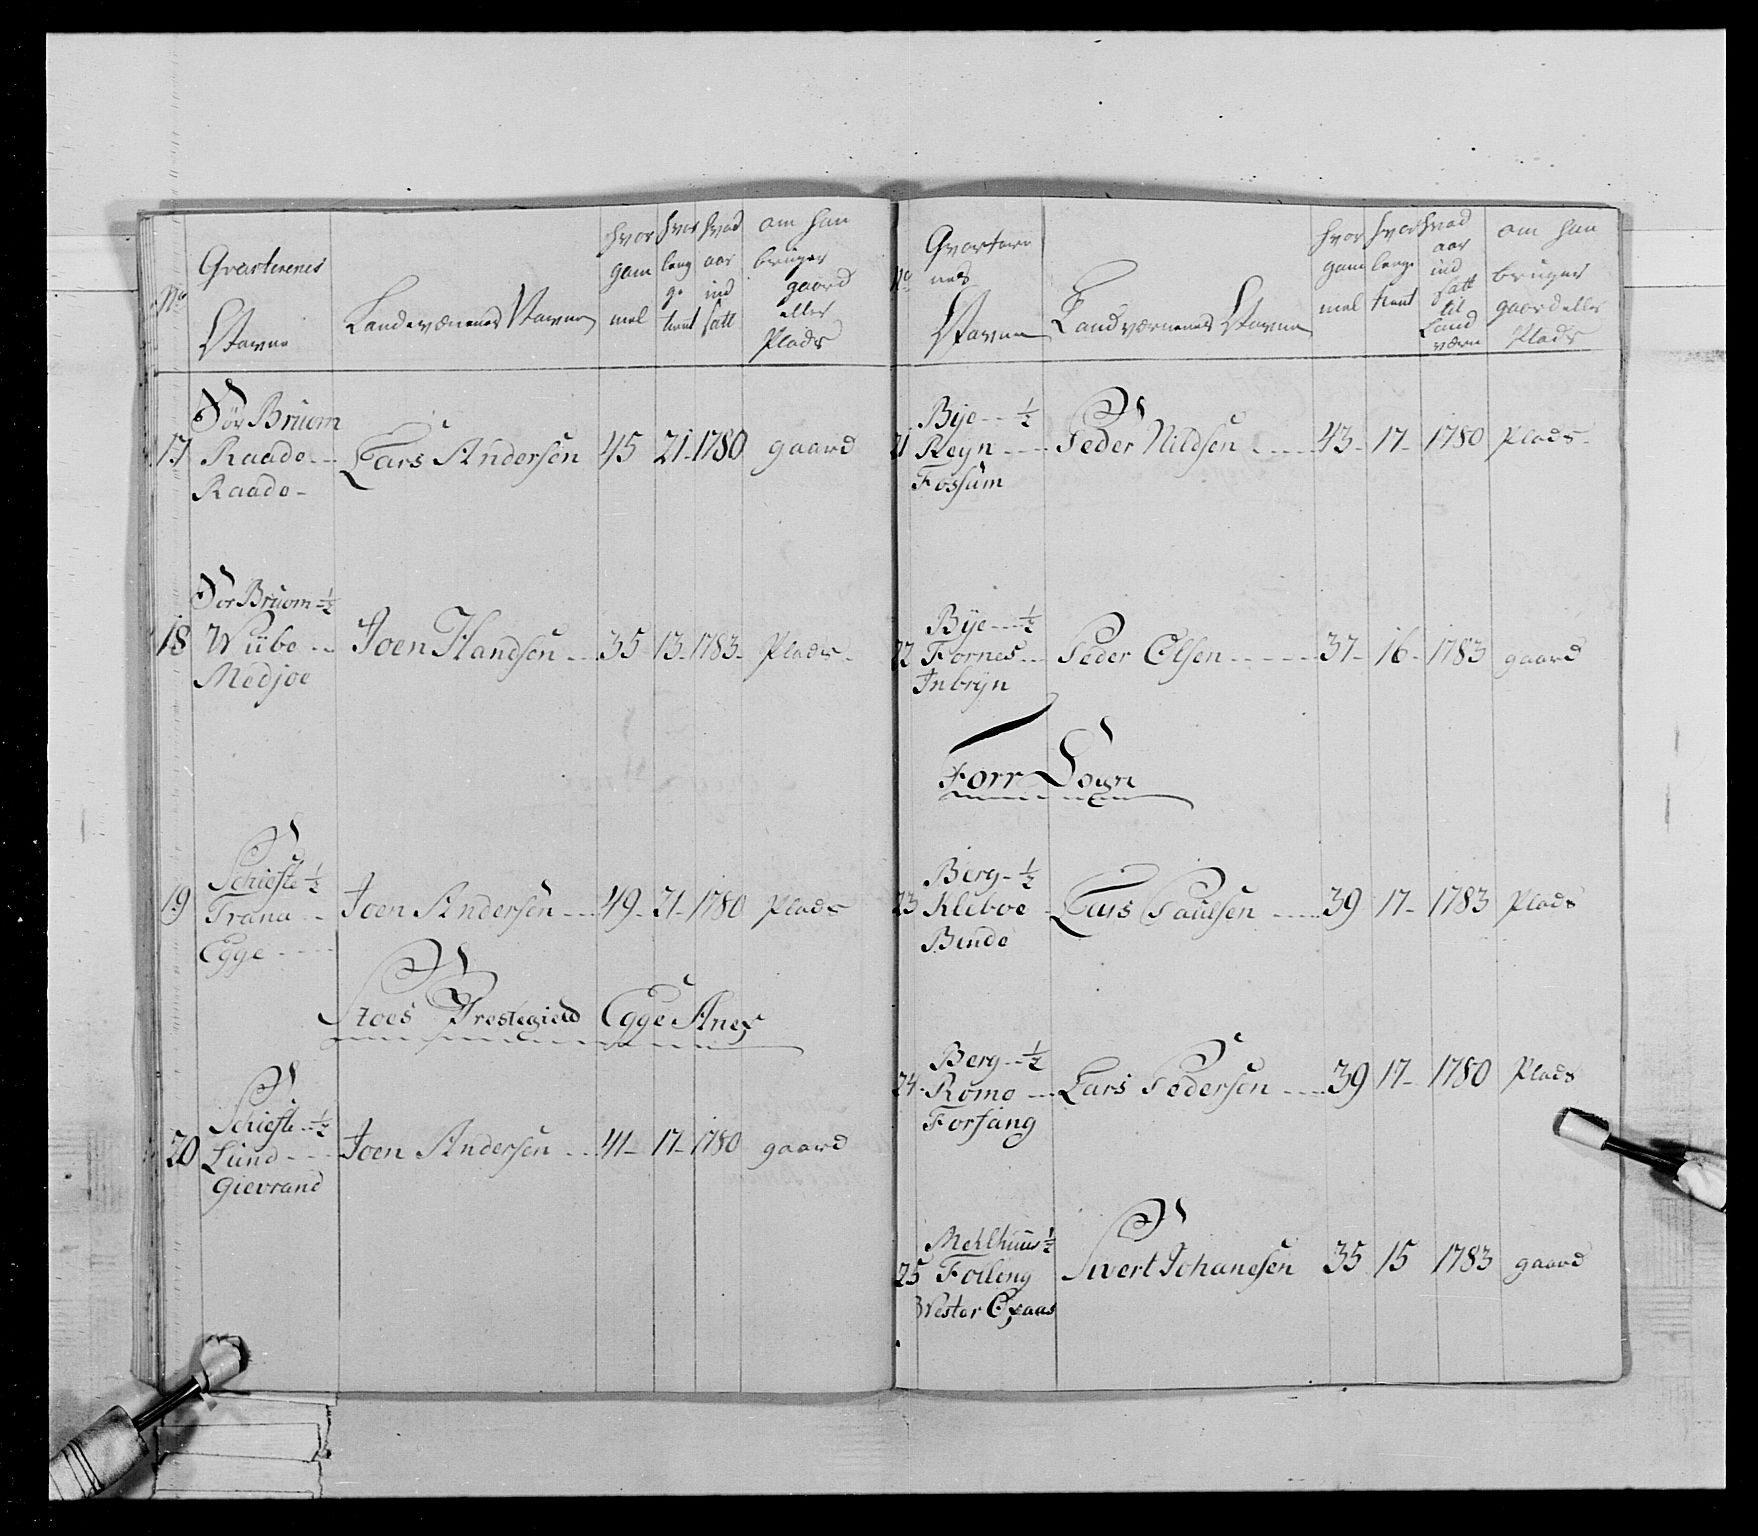 No
Qvarterenes
Navne
Landeværnenes Navne
hvor gam mel
hvor leng ge tient
hvad aar ind satt
om han bruger gaard eller Plads
Sör Bruem
17 Raade Lars Andersen 45 21 1780 gaard
Raade
Sör Bruem ½
18 Wiibe Joen Handsen 35 13 1783 Plads
Medjoe
Schiefte ½
19 Trana Joen Andersen 49 21 1780 Plads
Egge
Stoes Prestegield Egge Anex
Schiefte ½
20 Lund Joen Andersen 41 17 1780 gaard
Gievrand
No
Qvartere nes
Navne
Landværnenes Navne
hvor gam mel
hvor lenge tient
hvad aar ind satt til Land værn
om han bruger gaard eller Plads
Bye ½
21 Reyn Peder Nildsen 43 17 1780 Plads
Fossum
Bye ½
22 Fornes Peder Olsen 37 16 1783 gaard
Inbryn
Forr Sogn
Berg ½
23 Kleboe Lars Paulsen 39 17 1783 Plads
Binde
Berg ½
24 Romo Lars Pedersen 39 17 1780 Plads
Forsang
Mehlhuus ½
25 Foling Sivert Johanesen 35 15 1783 gaard
Wester Oxaas